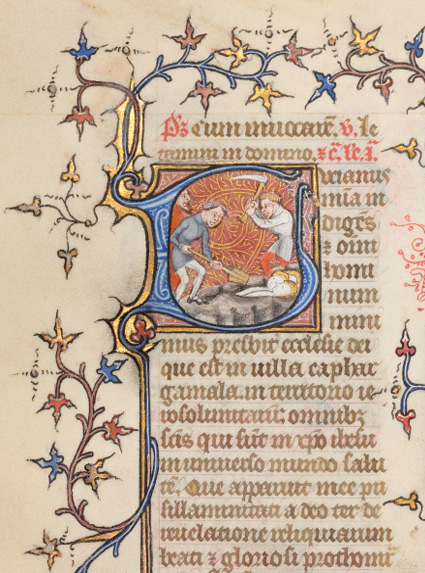 Cum inuocarē. v. Le
tamini in domino. xc. le. i.
ucianus
mīa in
digēs
⁊ oim
homi
num
mini
mus presbit̄ ecclesie dei
que est in uilla caphar
gamala. in territorio ie
rosolimitarū: omnibꝫ
scīs qui sūt in xp̄o ihesu
in uniuerso mundo salu
tē. Que apparuit mee pu
sillanimitati a deo ter de
reuelatione reliquiarum
beati ⁊ gloriosi prothom̄